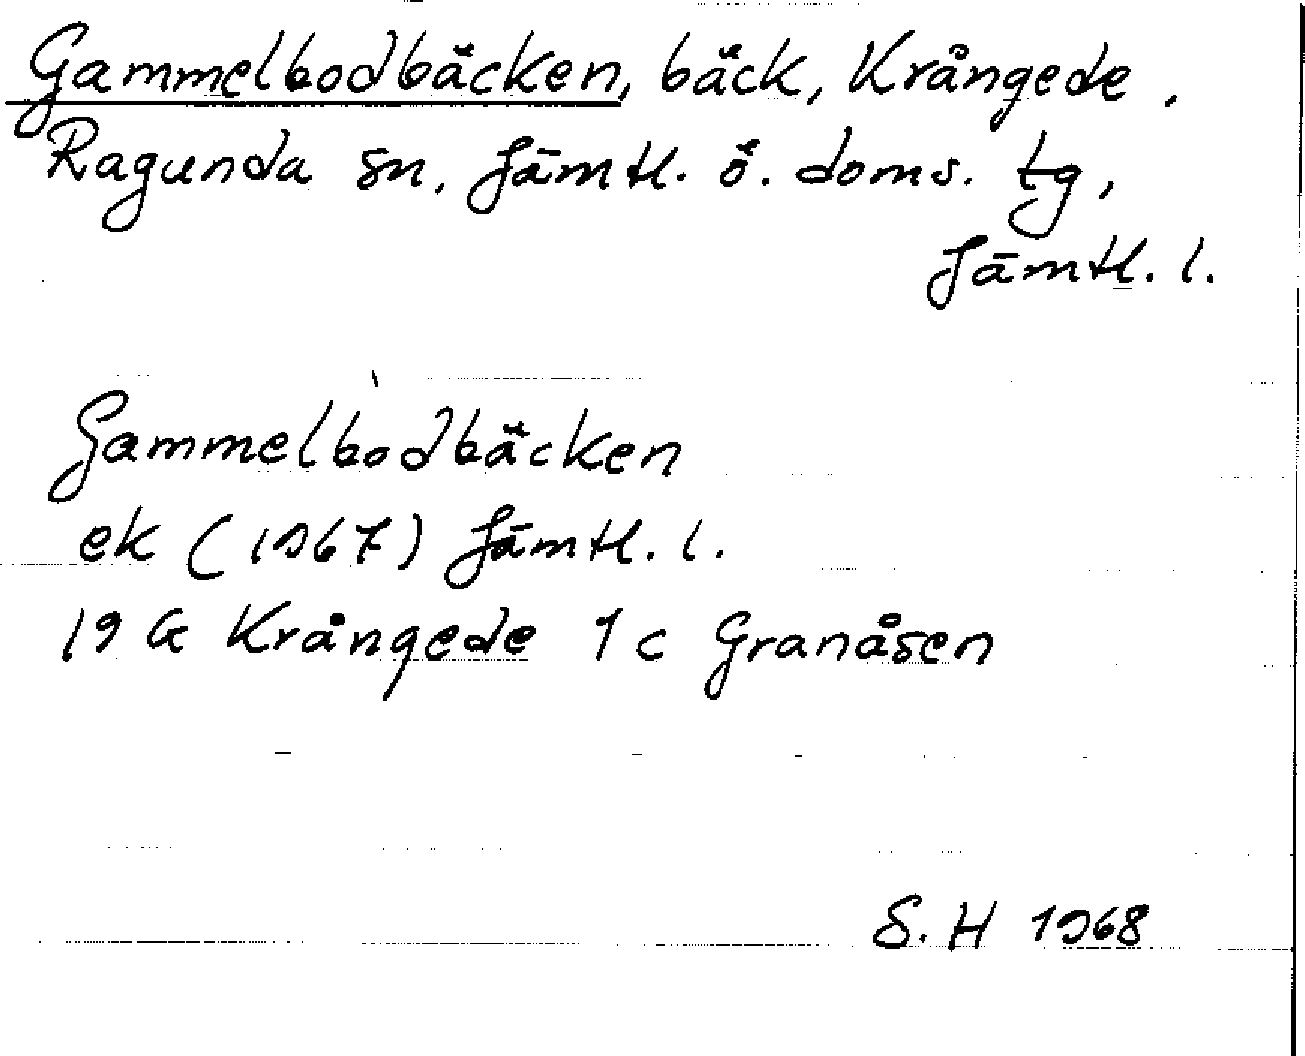 Gammelbodbäcken, bäck, Krångede,
Ragunda sn, Jämtl. ö. doms. tg,
Jämtl. l.
Gammelbodbäcken
ek (1967) Jämtl. l.
19 G Krångede 1 c Granåsen
S. H 1968